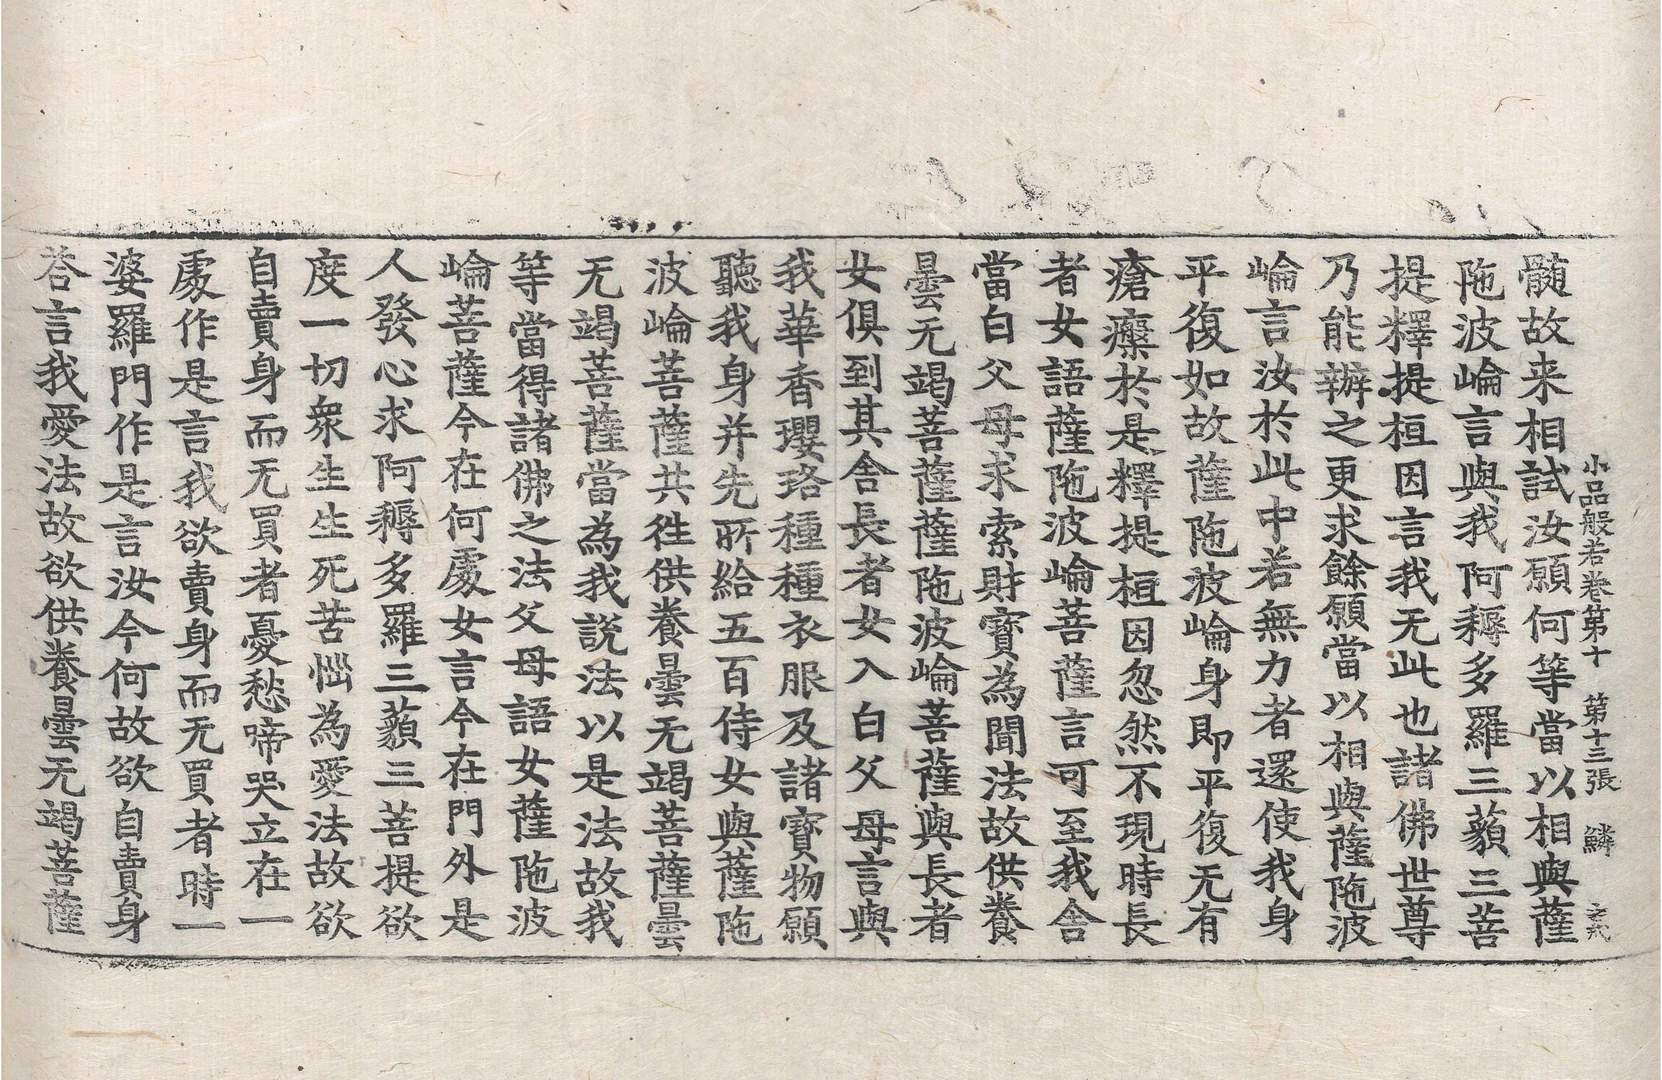 小品般若卷第十　第十三張　鱗
髄故来相試汝願何等當以相與薩
陁波崘言與我阿耨多羅三藐三菩
提釋提桓因言我无此也諸佛世尊
乃能辦之更求餘願當以相與薩陁波
崘言汝於此中若無力者還使我身
平復如故薩陁波崘身即平復无有
瘡瘢於是釋提桓因忽然不現時長
者女語薩陁波崘菩薩言可至我舍
當白父母求索財寳為聞法故供養
曇无竭菩薩薩陁波崘菩薩與長者
女俱到其舍長者女入白父母言與
我華香瓔珞種種衣服及諸寳物願
聽我身并先所給五百侍女與薩陁
波崘菩薩共徃供養曇无竭菩薩曇
无竭菩薩當為我說法以是法故我
等當得諸佛之法父母語女薩陁波
崘菩薩今在何處女言今在門外是
人發心求阿耨多羅三藐三菩提欲
度一切衆生生死苦惱為愛法故欲
自賣身而无買者憂愁啼哭立在一
處作是言我欲賣身而无買者時一
婆羅門作是言汝今何故欲自賣身
荅言我愛法故欲供養曇无竭菩薩